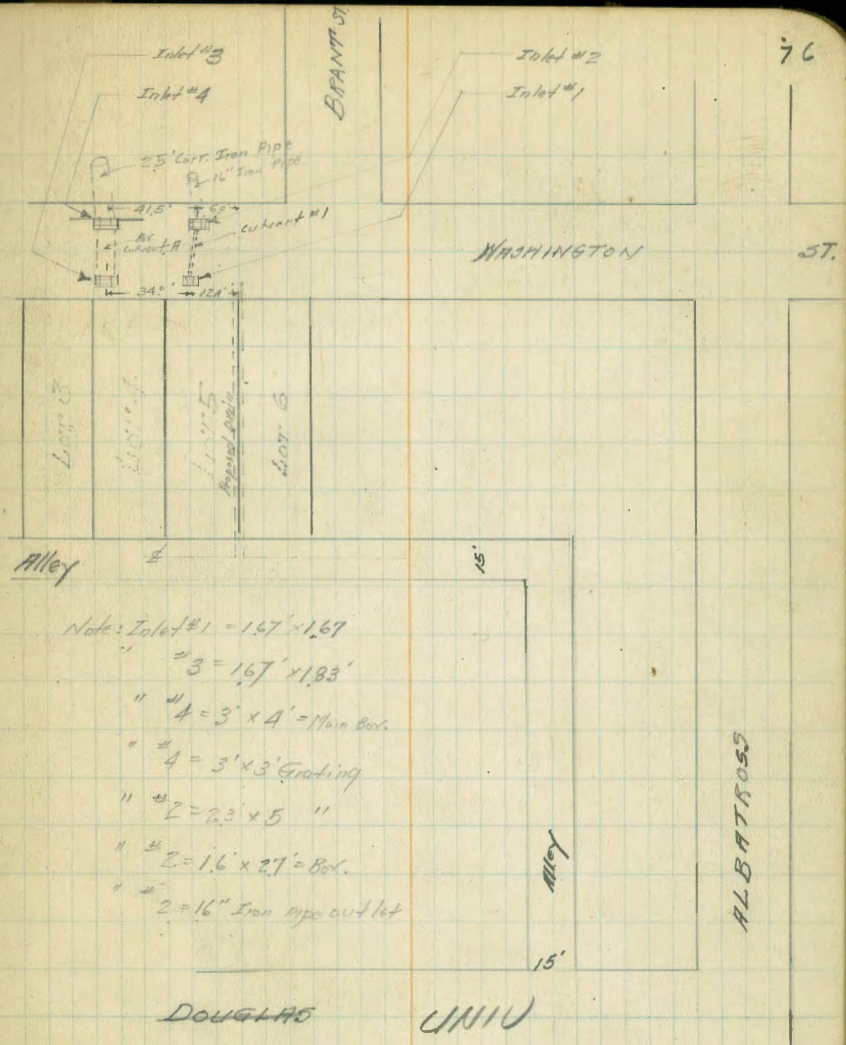 76
BRANT ST
Inlet #3
Inlet #2
Inlet #4
Inlet #1
25' Corr. Iron Pipe
16" Iron Pipe
41.5'
6.0'
Box culvert A
culvert #1
WASHINGTON ST.
34.0'
12.1'
LOT 3
LOT 4
LOT 5
Proposed Drain
LOT 6
Alley
15'
Note: Inlet #1 = 1.67' x 1.67
" #3 = 1.67' x 1.83'
" #4 = 3' x 4' = Main Box.
" #4 = 3' x 3' Grating
" #2 = 2.3' x 5 "
" #2 = 1.6' x 2.7' = Box.
" #2 = 16" Iron pipe outlet
Alley
15'
ALBATROSS
DOUGLAS
UNIV